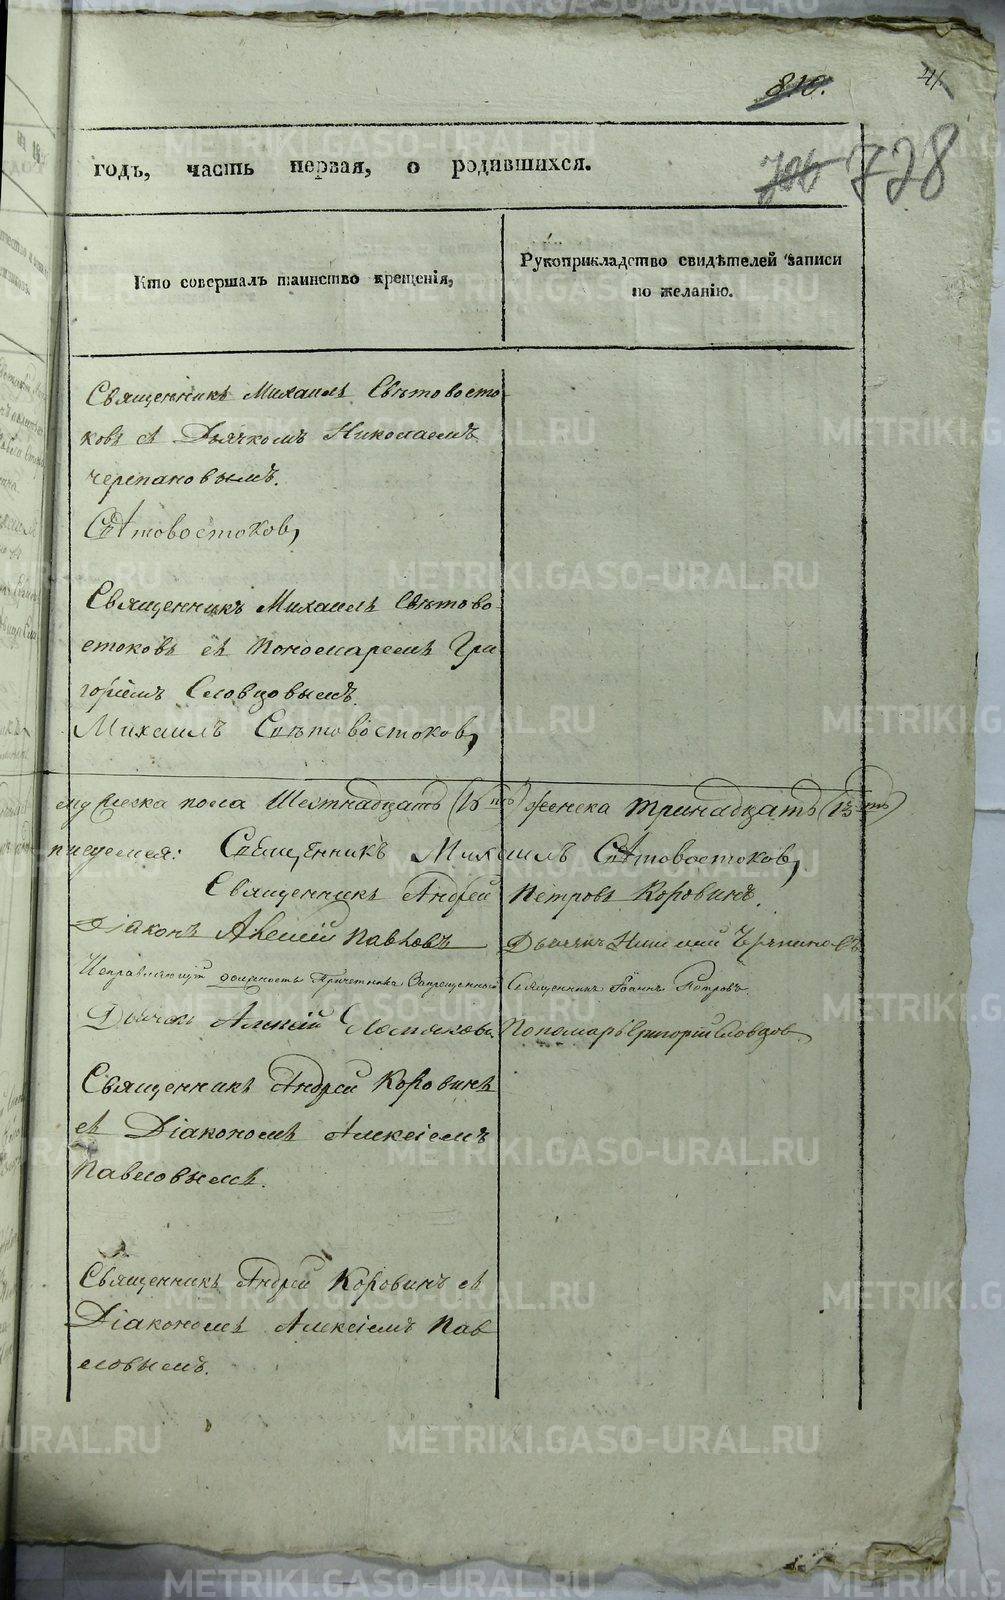 810.
41
706 728
годъ, часть первая, о родившихся.
Кто совершалъ таинство крещенія,
Рукоприкладство свидѣтелей записи
по желанію.
Священникъ Михаилъ Свѣтовосто-
ковъ съ Дьячкомъ Николаемъ
Черепановымъ.
Свѣтовостоков,
Священникъ Михаилъ Свѣтово-
стоковъ съ Пономаремъ Гри
горіемъ Словцовымъ.
Михаилъ Свѣтовостоков,
мужеска пола Шестнадцать (16ть) женска тринадцать (13ть)
Священникъ Михаилъ Свѣтовостоков,
Священникъ Андрей Петровъ Коровинъ.
Діаконъ Алексій Павловъ Дьячкъ Николай Черепановъ
Исправляющій должность Причетника Запрещенный Священникъ Іоаннъ Петровъ.
Дьячек Алексій Пономарь Григорій Словцов
Священникъ Андрей Коровинъ
съ Діакономъ Алексіемъ
Павловымъ.
Священникъ Андрей Коровинъ съ
Діакономъ Алексіемъ Пав
ловымъ.
METRIKI.GASO-URAL.RU